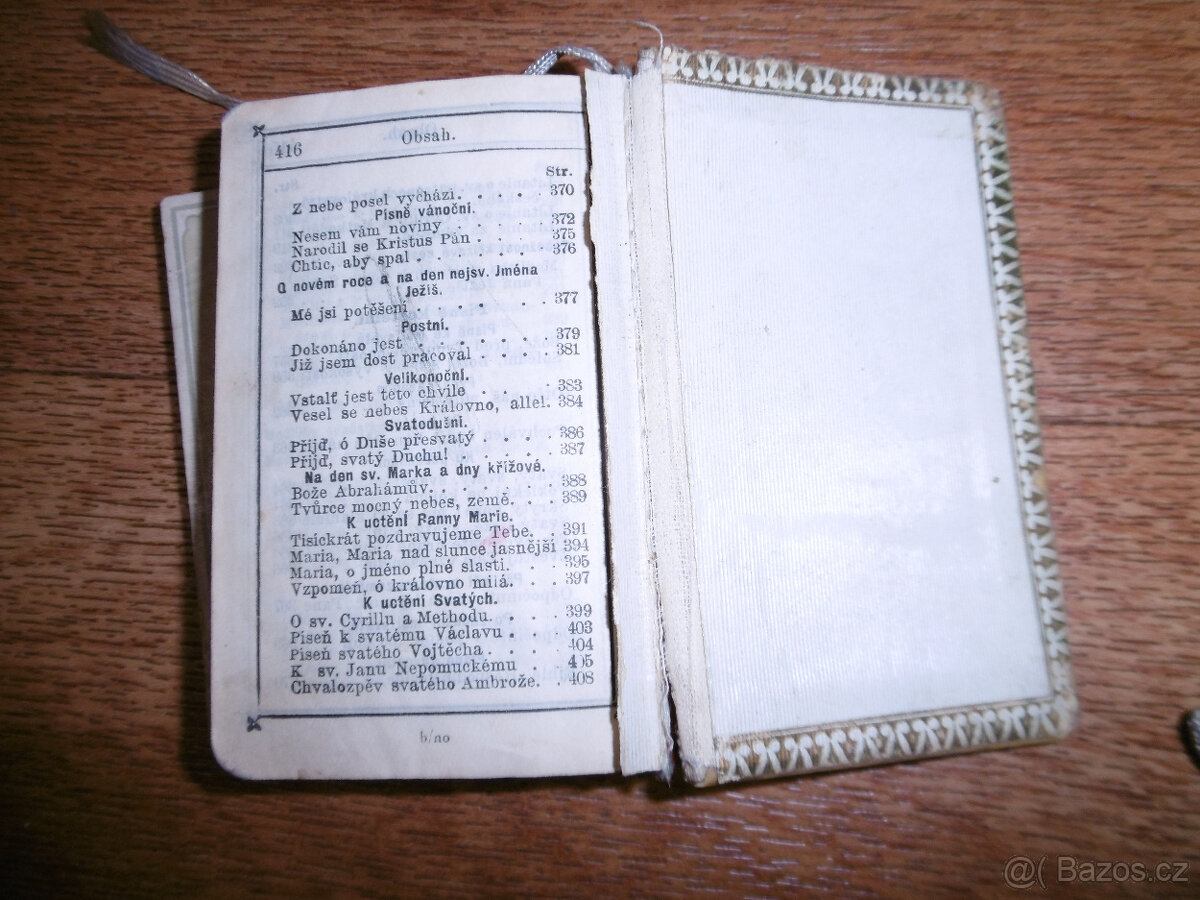 416
Obsah.
Str.
Z nebe posel vychází. . . . . 370
Písně vánoční.
Nesem vám noviny . . . . . 372
Narodil se Kristus Pán . . . . 375
Chtíc, aby spal . . . . . . 376
O novém roce a na den nejsv. Jména
Ježíš.
Mé jsi potěšení . . . . . . 377
Postní.
Dokonáno jest . . . . . . 379
Již jsem dost pracoval . . . . 381
Velikonoční.
Vstalť jest teto chvíle . . . 383
Vesel se nebes Královno, allel. 384
Svatodušní.
Přijď, ó Duše přesvatý . . . . 386
Přijď, svatý Duchu! . . . . 387
Na den sv. Marka a dny křížové.
Bože Abrahámův. . . . . . 388
Tvůrce mocný nebes, země. . . 389
K uctění Panny Marie.
Tisíckrát pozdravujeme Tebe. . 391
Maria, Maria nad slunce jasnější 394
Maria, o jméno plné slasti. . . 395
Vzpomeň, ó královno milá. . . 397
K uctění Svatých.
O sv. Cyrillu a Methodu. . . . 399
Píseň k svatému Václavu . . . 403
Píseň svatého Vojtěcha . . . . 404
K sv. Janu Nepomuckému . . 405
Chvalozpěv svatého Ambrože. . 408
b/no
@( Bazos.cz